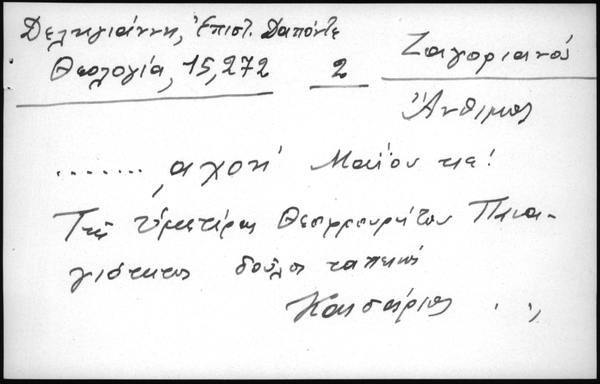 Δεληγιάννη, Ἐπιστ. Δαπόντε
Θεολογία, 15, 272 2 Ζαγοριανού
Ἄνθιμος
........, αχοή Μαΐου κα!
Τῆς Ὑμετέρας Θεοφρουρήτου Πανα-
γιότητος δοῦλος ταπεινός
Καισάριος . . ,